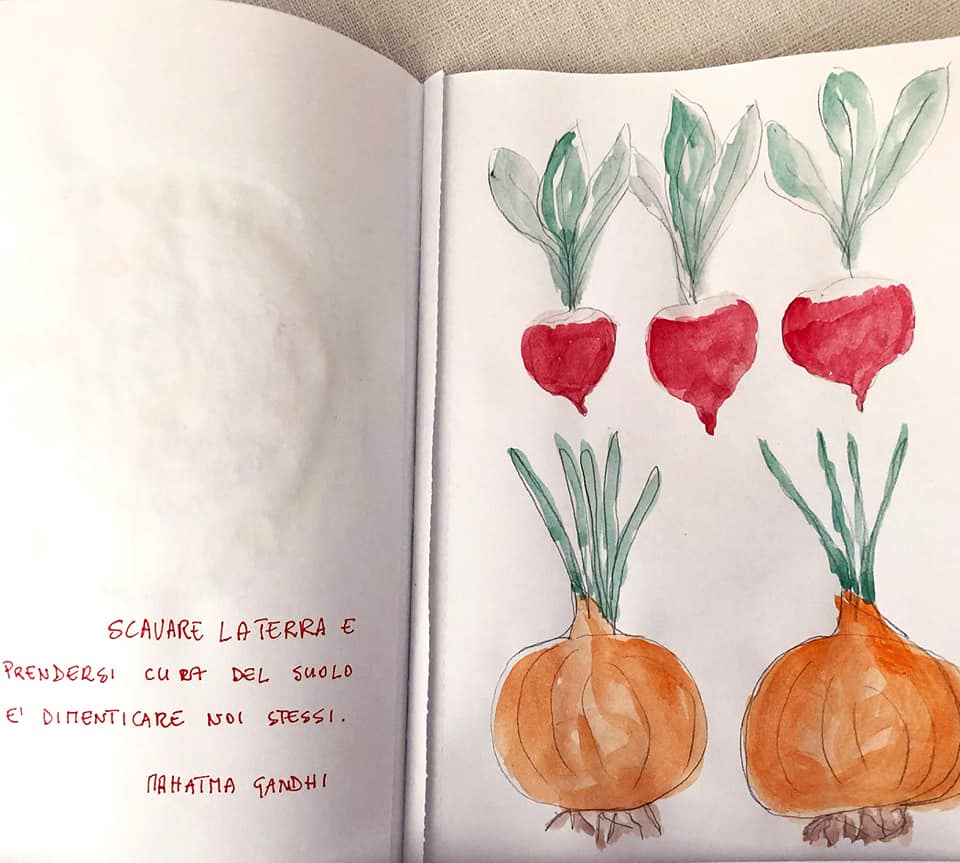 SCAVARE LA TERRA E
PRENDERSI CURA DEL SUOLO
E' DIMENTICARE NOI STESSI.
MAHATMA GANDHI